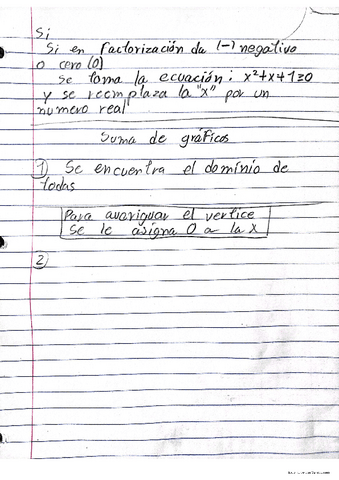 Si
Si en factorización da (-) negativo
o cero (0)
Se toma la ecuación: x²+x+1≥0
y se reemplaza la "x" por un
numero real
Suma de gráficos
1) Se encuentra el dominio de
todas
Para avariguar el vertice
Se le asigna 0 a la x
2